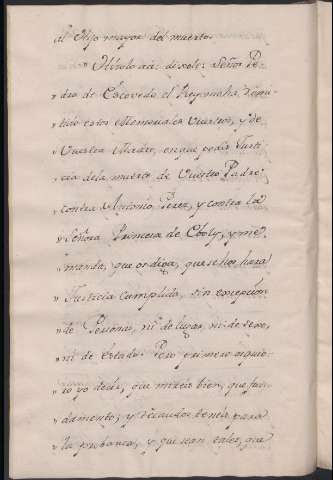 al Hijo mayor del muerto.
" Habló acá: dixole: Señor Pe-
" dro de Escovedo, el Rey me ha remi-
" tido estos Memoriales vuestros, y de
" Vuestra Madre, en que pedís Justi-
" cia de la muerte de Vuestro Padre,
" contra Antonio Perez, y contra la
" Señora Princesa de Eboly, y me
" manda, que os diga, que se hos hara
" Justicia cumplida, sin excepción
" de Personas, ni de lugar, ni de sexo,
" ni de estado: Pero primero os quie-
" ro yo decir, que mireis bien, que fun-
" damentos, y recaudos teneis para
" la probanza, y que sean tales, que